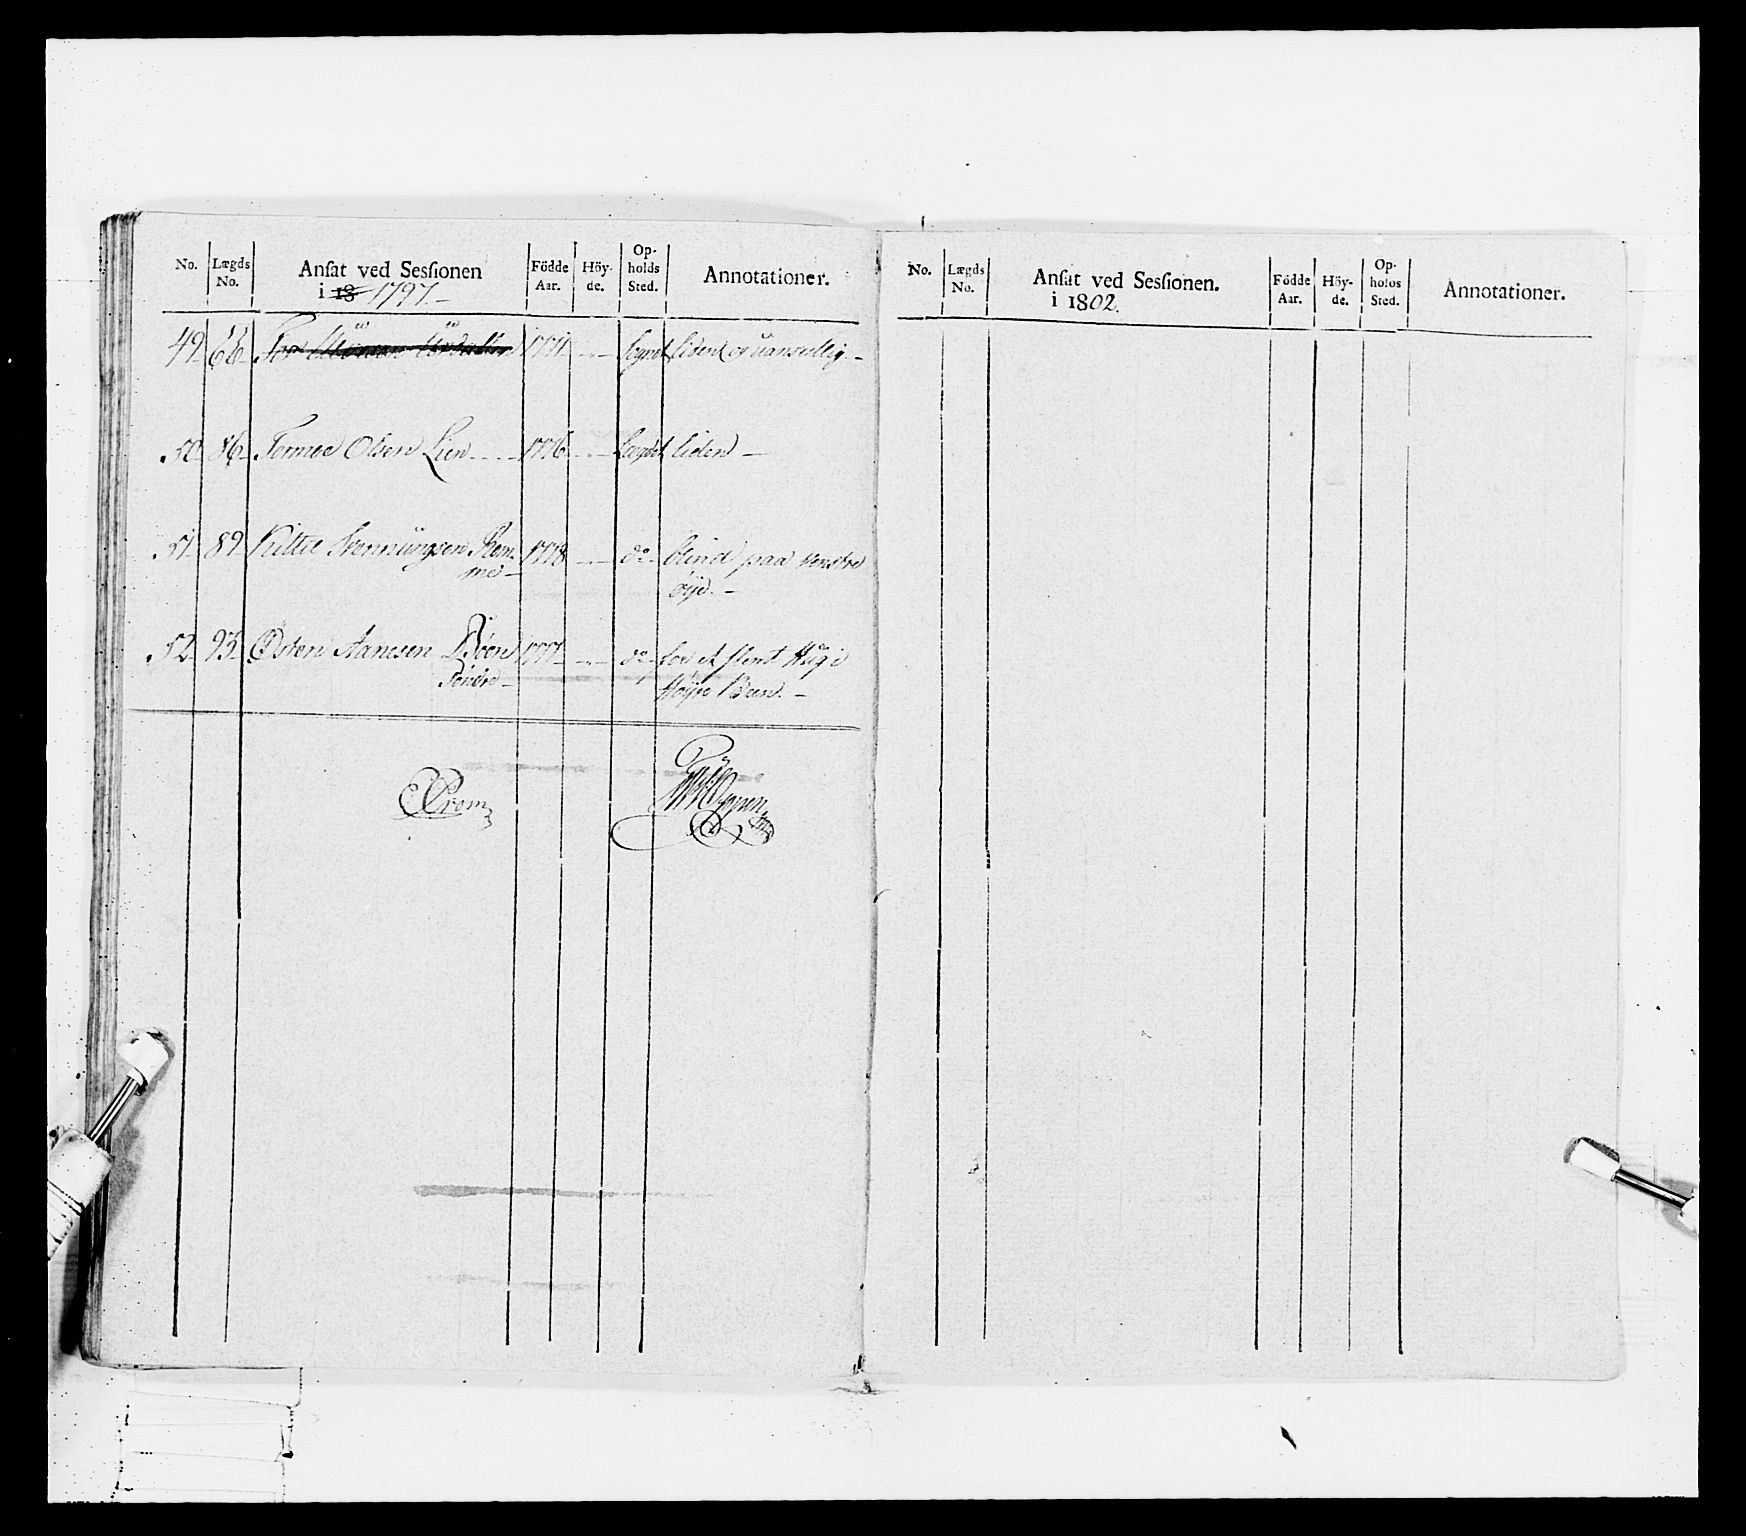 No. Lægds No. Ansat ved Sessionen i 18 1797 Födde Aar. Höy-de. Op-holds Sted. Annotationer.
49 66 Tor 1771 Sognet liden og uanseelig
50 86 Tormoe Olsen Lien 1776 Lægdet liden
51 89 Kittil Svennungsen Rom- 1778 do blind paa venstre
me øÿe.
52 93 Østen Aanesen Bøen 1777 do for et slemt Hug i
Söndre Høÿre Been.
Prom
No. Lægds No. Ansat ved Sessionen. i 1802. Födde Aar. Höy-de. Op-holds Sted. Annotationer.